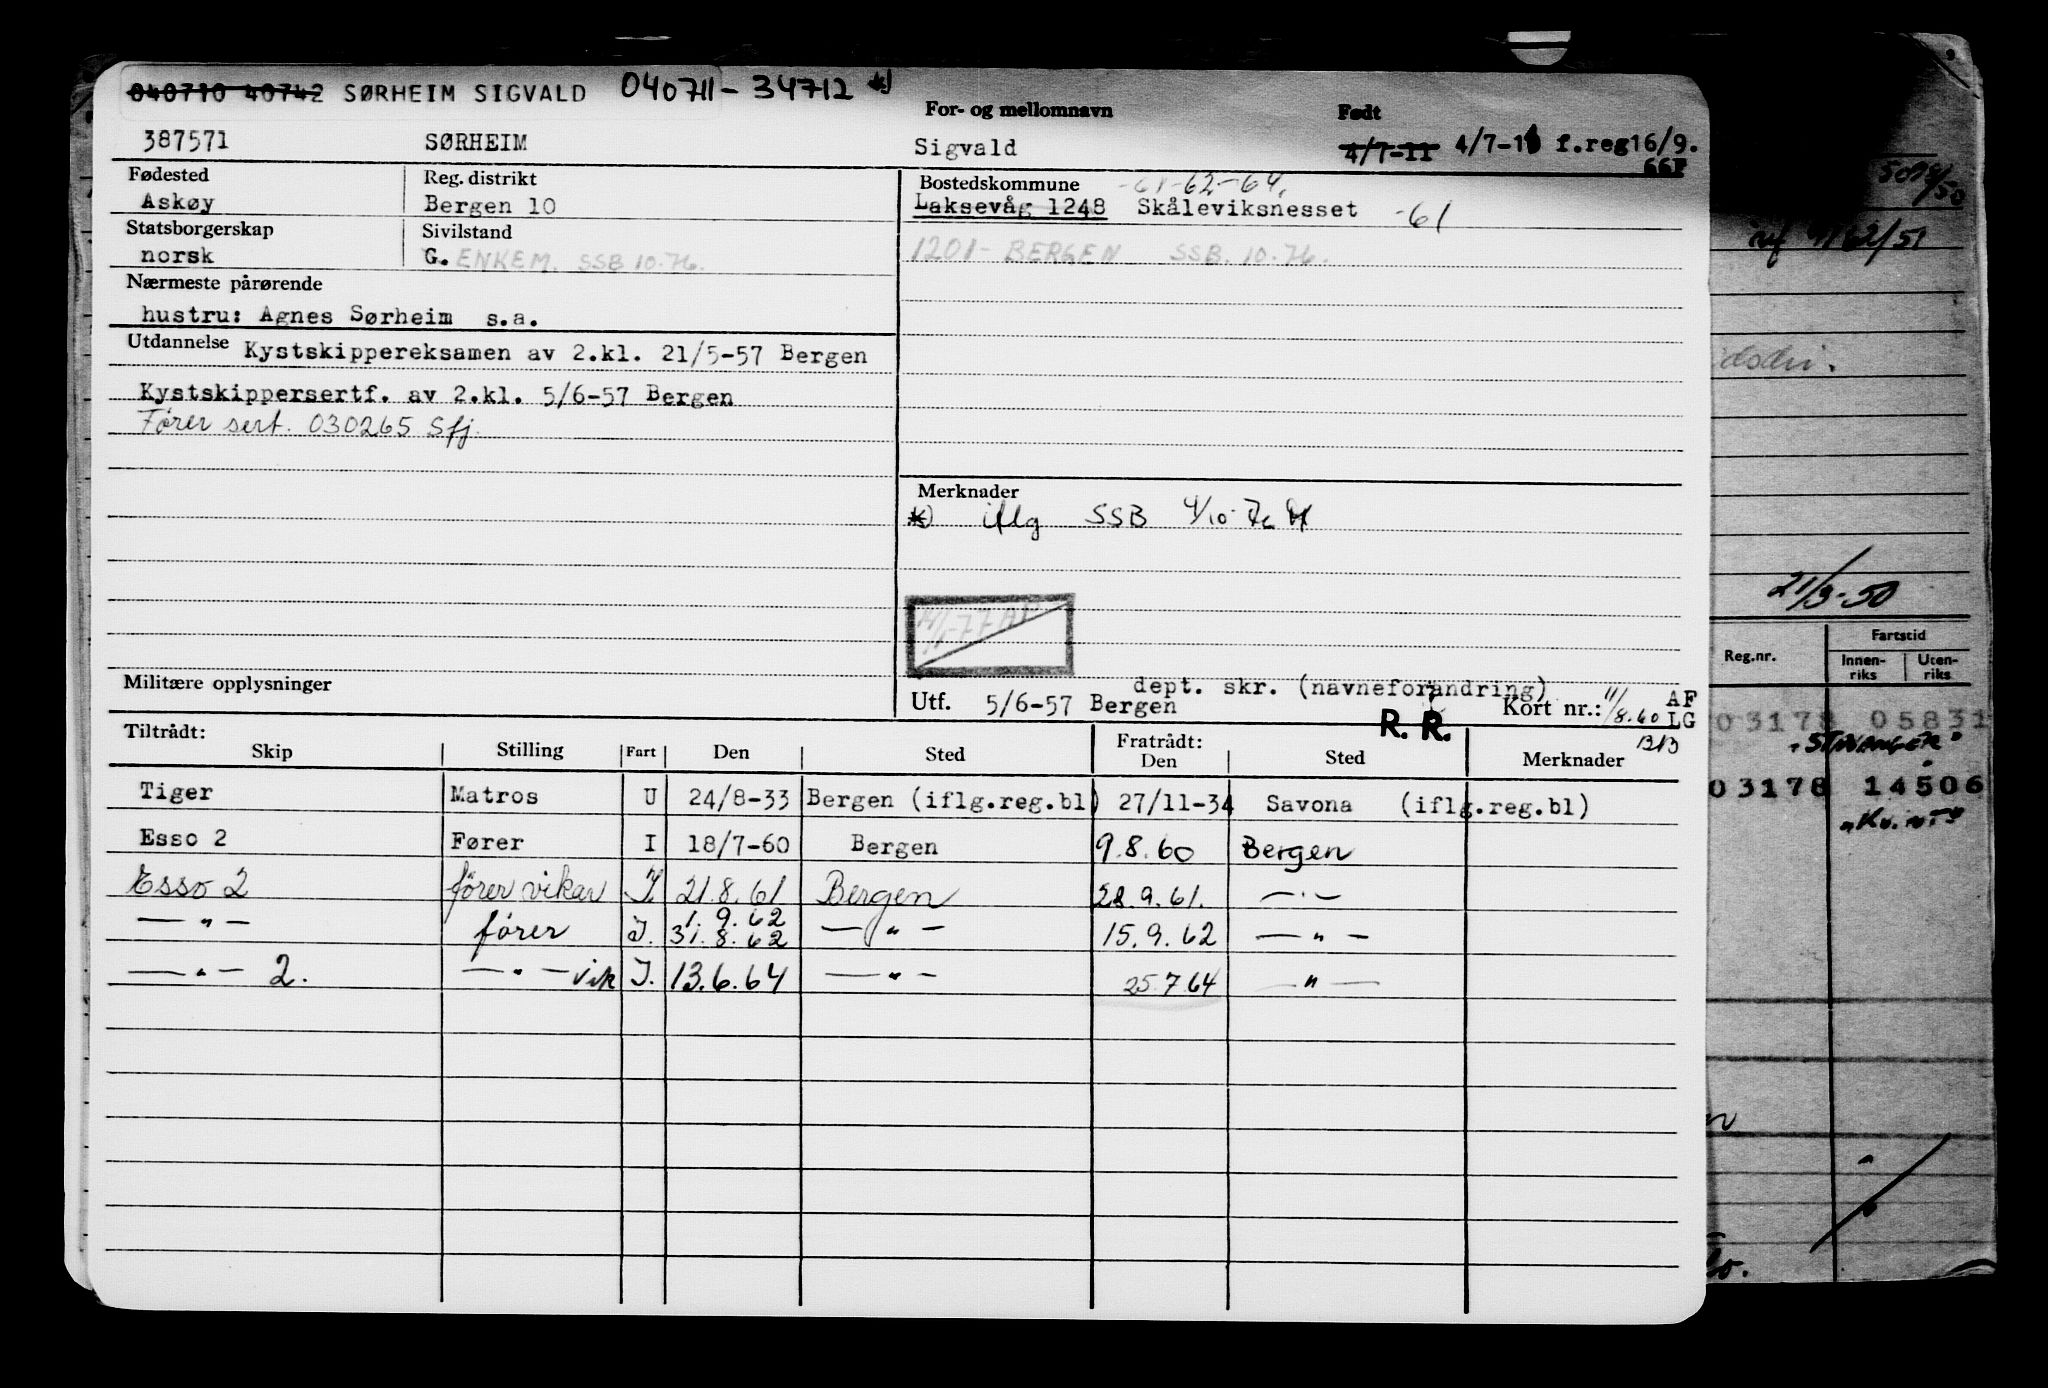 040710 40742 SØRHEIM SIGVALD 040711-34712 *)
For- og mellomnavn Født
387571 SØRHEIM Sigvald 4/7-11 4/7-11 f.reg16/9.
66P
Fødested Reg. distrikt Bostedskommune -61-62-64.
Askøy Bergen 10 Laksevåg 1248 Skåleviksnesset -61
Statsborgerskap Sivilstand
norsk G. ENKEM. SSB 10.76. 1201- BERGEN SSB. 10.76.
Nærmeste pårørende
hustru: Agnes Sørheim s.a.
Utdannelse Kystskippereksamen av 2.kl. 21/5-57 Bergen
Kystskippersertf. av 2.kl. 5/6-57 Bergen
Fører sert. 030265 Sfj.
Merknader
*) iflg SSB 4/10-76
Militære opplysninger
dept. skr. (navneforandring)
Utf. 5/6-57 Bergen Kort nr.: 11/8.60 AF
R. R. LG
Tiltrådt: Fratrådt:
Skip Stilling Fart Den Sted Den Sted Merknader
Tiger Matros U 24/8-33 Bergen (iflg.reg.bl) 27/11-34 Savona (iflg.reg.bl)
Esso 2 Fører I 18/7-60 Bergen 9.8.60 Bergen
Esso 2 fører vikar I. 21.8.61 Bergen 28.9.61. — · —
1.9.62
— " — fører I. 31.8.62 — " — 15.9.62 — " —
— " — 2. — " — vik I. 13.6.64 — " — 25.7.64 — " —
21/3-50
Reg.nr. Fartstid
Innen-riks Uten-riks
03178 05831
"STAVANGER"
03178 14506